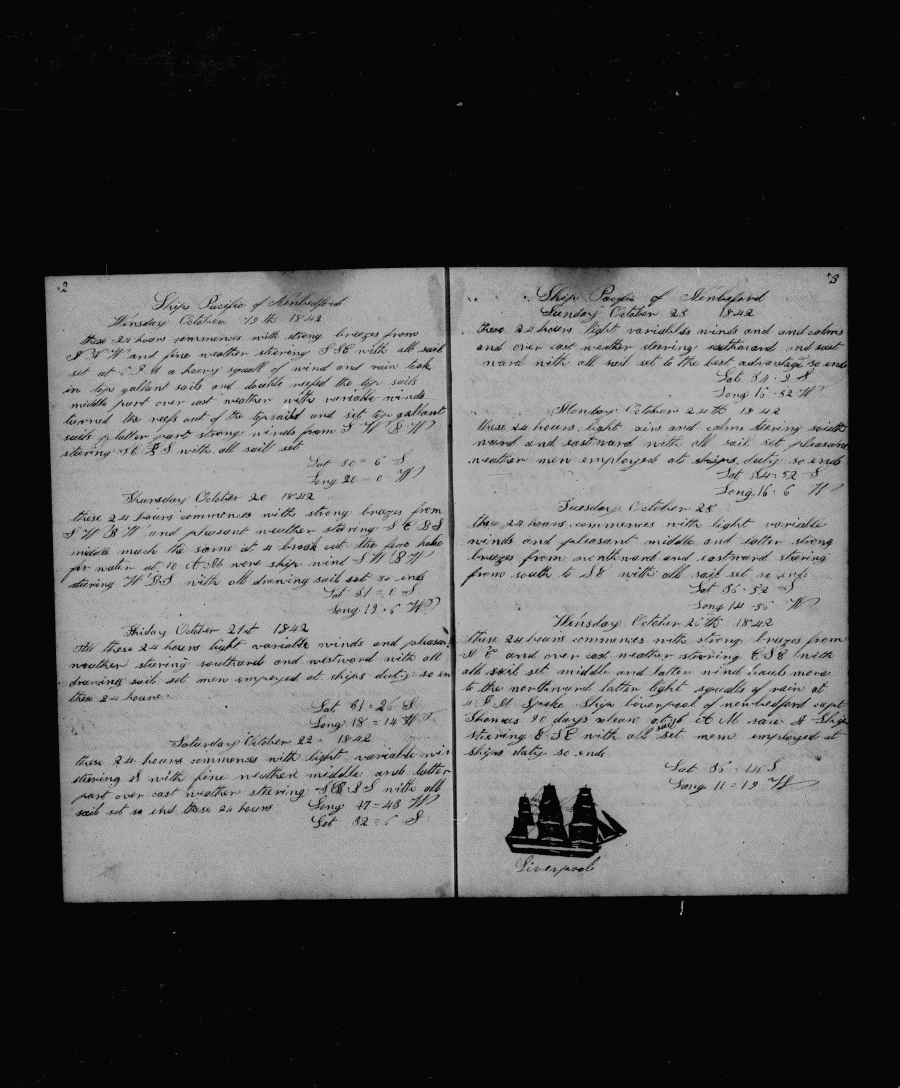 2
Ship Pacific of Newbedford
Winsday October 19th 1842
these 24 hours commences with strong breezes from
and fine weather steering S E with all sail
set at 6 P M a heavy squall of wind and rain took
in top gallant sails and double reefed the top sails
middle part over cast weather with variable winds
turned the reefs out of the topsails and set top gallant
sails latter part strong winds from S W B W
steering S E B S with all sail set
Lat 30 = 6 S
Long 20 = 0 W
Thursday October 20 1842
these 24 hours commences with strong breezes from
S W B W and pleasant weather steering S E B S
middle much the same at 4 break out the fore hole
for water at 10 A M wore ship wind S W B W
steering W B S with all drawing sail set so ends
Lat 31 = 0 S
Long 19 = 6 W
Friday October 21st 1842
these 24 hours light variable winds and pleasan
weather steering southard and westward with all
drawing sail set men employed at ships duty so en
these 24 hours
Lat 31 = 26 S
Long 18 = 14 W
Saturday October 22 = 1842
these 24 hours commences with light variable win
steering S with fine weather middle and latter
part over cast weather steering S E B S with all
sail set so end these 24 hours Long 17 = 43 W
Lat 32 = 6 S
3
Ship Pacific of Newbeford
Sunday October 23 1842
these 24 hours light variables winds and and calms
and over cast weather steering southward and east
ward with all sail set to the best advantage so ends
Lat 34 = 2 S
Long 16 = 52 W
Monday October 24th 1842
these 24 hours light airs and calms steering south
ward and eastward with all sail set pleasant
weather men employed at ships duty so ends
Lat 34 = 52 S
Long 16 = 6 W
Tuesday October 25
these 24 hours commences with light variable
winds and pleasant middle and latter strong
breezes from northward and eastward steering
from south to S E with all sail set so ends
Lat 36 = 52 S
Long 14 = 56 W
Winsday October 26th 1842
these 24 hours commences with strong breezes from
N E and over cast weather steering E S E with
all sail set middle and latter wind hauls more
to the northward latter light squalls of rain at
4 P M Spoke Ship Liverpool of newbedford capt
Thomas 90 days clean at 6 A M saw A Ship
steering E S E with all sail set men employed at
ships duty so ends
Lat 36 = 14 S
Long 11 = 19 W
Liverpool